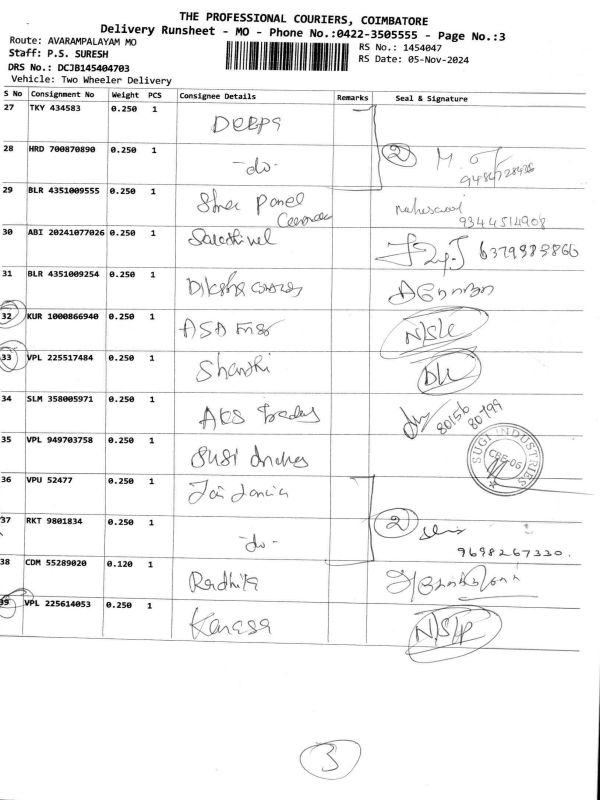 THE PROFESSIONAL COURIERS, COIMBATORE
Delivery Runsheet - MO - Phone No.:0422-3505555 - Page No.:3
Route: AVARAMPALAYAM MO
RS No.: 1454047
Staff: P.S. SURESH
RS Date: 05-Nov-2024
DRS No.: DCJB145404703
Vehicle: Two Wheeler Delivery
S No Consignment No Weight PCS Consignee Details Remarks Seal & Signature
27 TKY 434583 0.250 1 Deepa
28 HRD 700870890 0.250 1 -do- 2
29 BLR 4351009555 0.250 1 Panel
9344514908
30 ABI 20241077026 0.250 1 Sakthivel 6379383866
31 BLR 4351009254 0.250 1
32 KUR 1000866940 0.250 1 N/S/L
33 VPL 225517484 0.250 1 Shanthi DL
34 SLM 358005971 0.250 1 AKS Traders 80156
80799
35 VPL 949703758 0.250 1 Susi
SUGI INDUSTRIES
CBE-06
36 VPU 52477 0.250 1 Jai
37 RKT 9801834 0.250 1 -do- 2
9698267330.
38 CDM 55289020 0.120 1 Radhika
39 VPL 225614053 0.250 1 N/S/P
3